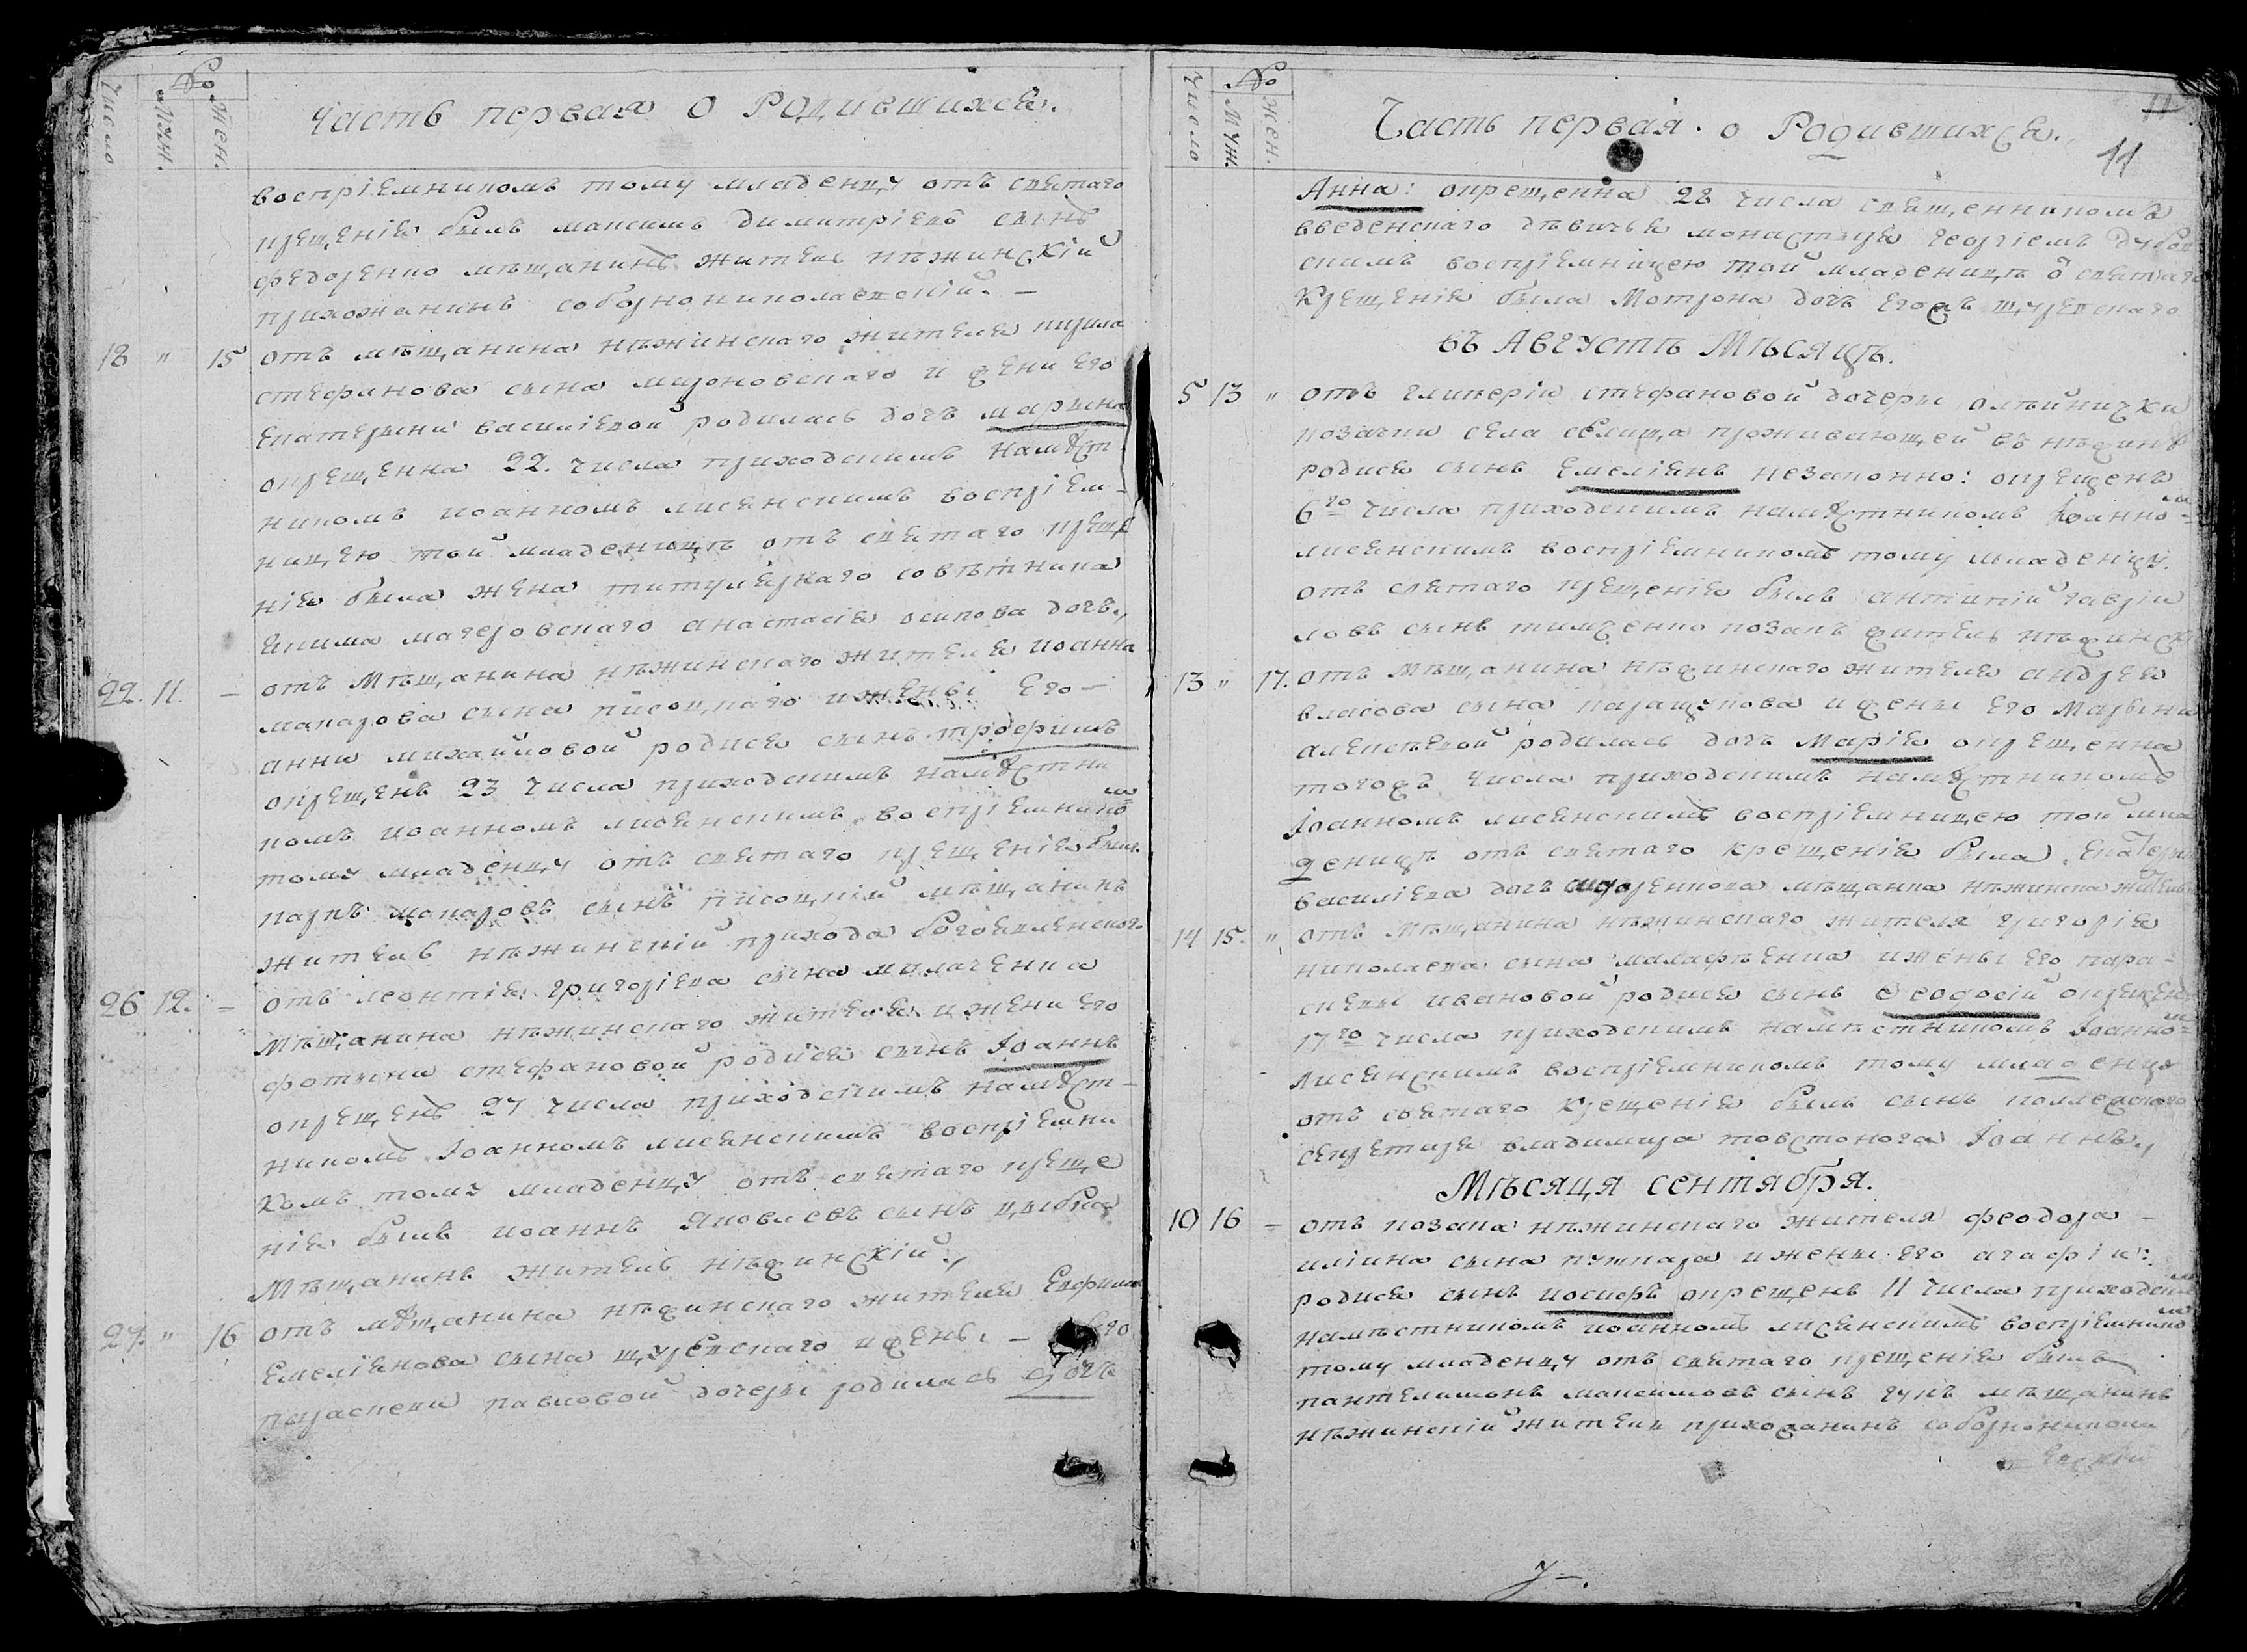 №
Число
Муж.
Жен.
Часть первая о Родившихся.
воспріемникомъ тому младенцу отъ святаго
крещенія былъ максимъ димитріевъ сынъ
федоренко мѣщанинъ житель нѣжинскій
прихожанинъ соборнониколаевскій. —
18 " 15 отъ мѣщанина нѣжинскаго жителя кирила
стефанова сына мироновскаго и жени его
екатерыни василіевой родилась дочъ марына
окрещенна 22. числа приходскимъ намѣст-
никомъ иоанномъ лисянскимъ воспріем-
ницею той младеницѣ отъ святаго креще
нія была жена титулярнаго совѣтника
якима мачеровскаго анастасія осипова дочъ.,
22. 11. — отъ мѣщанина нѣжинскаго жителя иоанна
макарова сына писоцкаго и жены его —
анни михайловой родися сынъ трофимъ
окрещенъ 23 числа приходскимъ намѣстни
комъ иоанномъ лисянскимъ воспріемникомъ
тому младенцу отъ святаго крещенія былъ
карпъ макаровъ сынъ писоцкій мѣщанинъ
житель нѣжинскій прихода богоявленского
26 12. — отъ леонтія григоріева сына
мѣщанина нѣжинскаго жителя и жени его
фотыни стефановой родися сынъ Іоаннъ
окрещенъ 27 числа приходскимъ намѣст-
никомъ Іоанномъ лисянскимъ воспріемни
комъ тому младенцу отъ святаго креще
нія былъ иоаннъ яковлевъ сынъ цыбля
мѣщанинъ житель нѣжинскій.,
27. " 16 отъ мѣщанина нѣжинскаго жителя евфима
емеліянова сына щуревскаго и жены — его
параскеви павловой дочеры родилась дочъ
№
Число
Муж.
Жен.
Часть первая. о Родившихся.
11
11
Анна: окрещенна 28 числа священникомъ
введенскаго дѣвичья монастыря георгіемъ
скимъ воспріемницею той младеницѣ ѿ святаго
крещенія была Мотрона дочъ егожъ щуревскаго
въ Августѣ Мѣсяцѣ.
5 13 " отъ гликеріи стефановой дочеры олѣйнички
козачки села проживающей въ нѣжинѣ
родися сынъ Емеліянъ незаконно: окрещенъ
6го числа приходскимъ намѣстникомъ Іоанномъ
лисянскимъ воспріемникомъ тому младенцу.
отъ святаго крещенія былъ антипій гаврiи
ловъ сынъ тимченко козакъ житель нѣжинск
13 " 17. отъ мѣщанина нѣжинскаго жителя андрея
власова сына паращукова и жены его Марыни
алексѣевой родилась дочъ Марія окрещенна
тогожъ числа приходскимъ намѣстникомъ
Іоанномъ лисянскимъ воспріемницею той мла
деницѣ отъ святаго крещенія была екатери
василіева дочъ мѣщанка нѣжинска
14 15. " отъ мѣщанина нѣжинскаго жителя григорія
николаева сына малафѣенка и жены его пара-
скевы ивановой родися сынъ Ѳеодосій окрещенъ
17го числа приходскимъ намѣстникомъ Іоанномъ
Лисянскимъ воспріемникомъ тому младенцу
отъ святаго крещенія былъ сынъ коллежского
секретаря владимира товстонога Іоаннъ.,
Мѣсяця сентября.
10 16 — отъ козака нѣжинскаго жителя феодора —
иліина сына кушнара и жены его агафіи:
родися сынъ иосифъ окрещенъ 11 числа приходским
намѣстникомъ иоанномъ лисянскимъ воспріемником
тому младенцу отъ святаго крещенія былъ
пантелимонъ максимовъ сынъ гукъ мѣщанинъ
нѣжинскій житель прихожанинъ соборнониколa
евскій